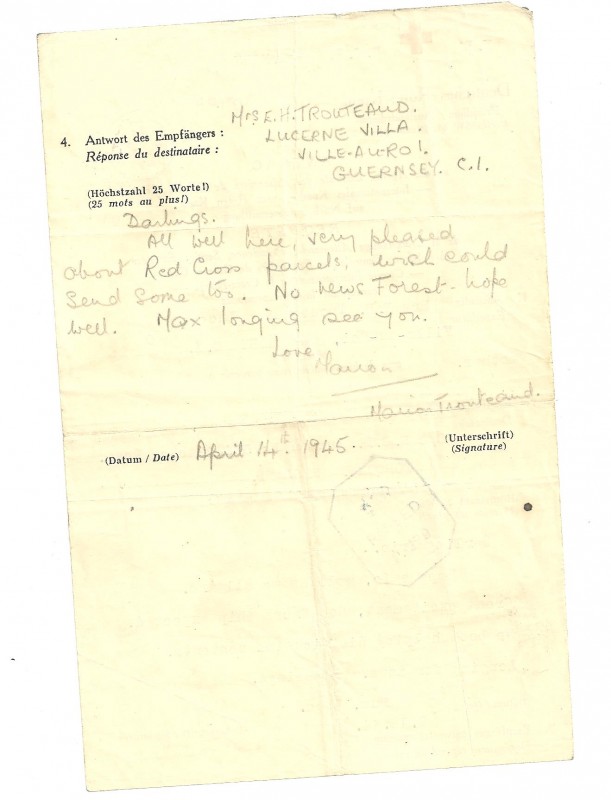 Mrs E.H. TROUTEAUD.
4. Antwort des Empfängers :
LUCERNE VILLA.
Réponse du destinataire :
VILLE-AU-ROI.
GUERNSEY. C.I.
(Höchstzahl 25 Worte!)
(25 mots au plus!)
Darlings.
All well here, very pleased
about Red Cross parcels, wish could
send some too. No news Forest - hope
well. Max longing see you.
Love
Marion
Marion Trouteaud.
(Datum / Date) April 14th 1945.
(Unterschrift)
(Signature)